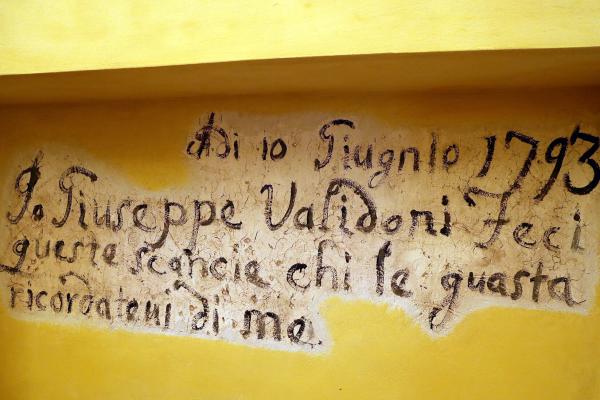 Adi 10 Giugnlo 1793
Io Giuseppe Validoni Feci
queste scancie chi le guasta
ricordateui di me